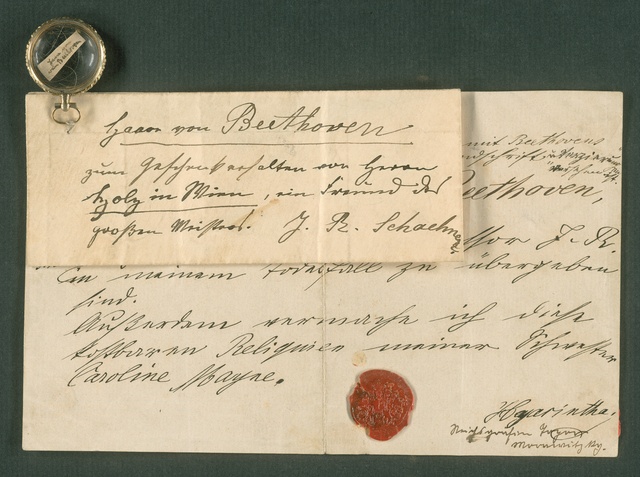 Haare von Beethoven
zum Geschenk erhalten von Herrn
Holz in Wien, ein Freund des
großen Meisters. J. R. Schachner
mit Beethovens
Beethoven,
J. R.
in meinem Todesfall zu übergeben
sind.
Außerdem vermache ich diese
kostbaren Reliquien meiner Schwester
Caroline Mayne.
Hyacintha.
Reichsgräfin